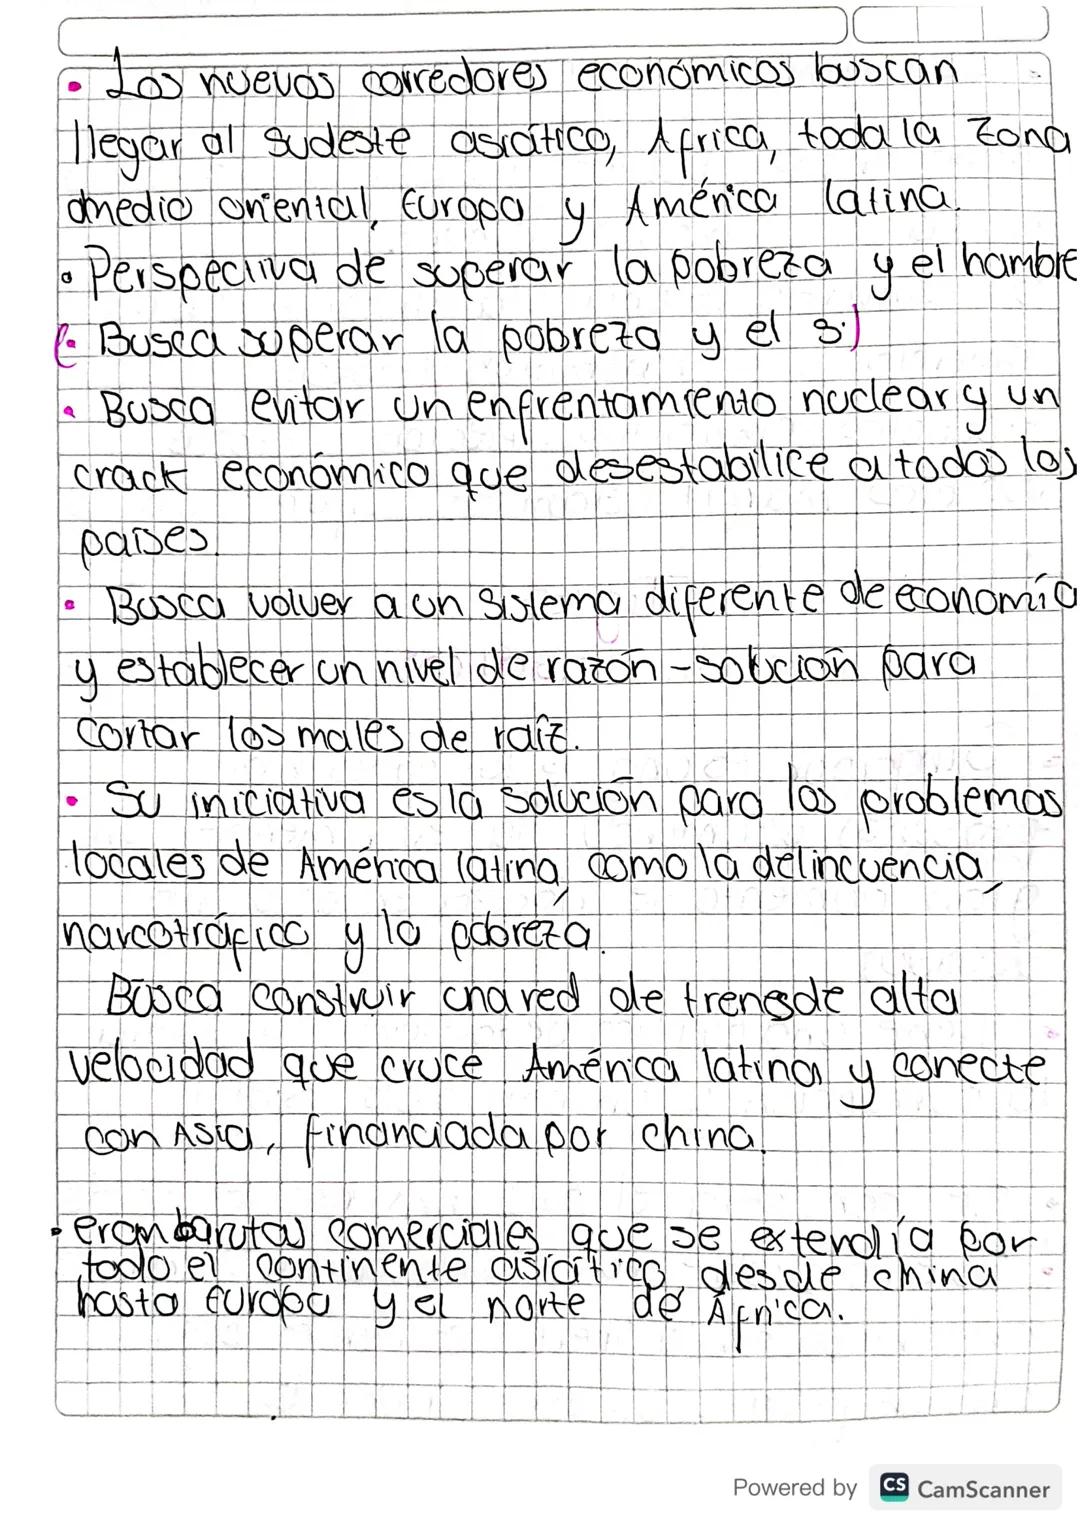 • Los nuevos corredores económicos buscan
llegar al sudeste asiático, Africa, toda la zona
medio oriental, Europa y América latina.
• Perspectiva de superar la pobreza y el hambre
(• Busca superar la pobreza y el 3.)
• Busca evitar un enfrentamiento nuclear y un
crack económico que desestabilice a todos los
países.
• Busca volver a un sistema diferente de economía
y establecer un nivel de razón - solución para
cortar los males de raíz.
• Su iniciativa es la solución para los problemas
locales de América latina, como la delincuencia,
narcotráfico y la pobreza.
Busca construir una red de trenes de alta
velocidad que cruce América latina y conecte
con Asia, financiada por china.
• eran rutas comerciales que se extendía por
todo el continente asiático, desde china
hasta Europa y el norte de África.
Powered by CS CamScanner